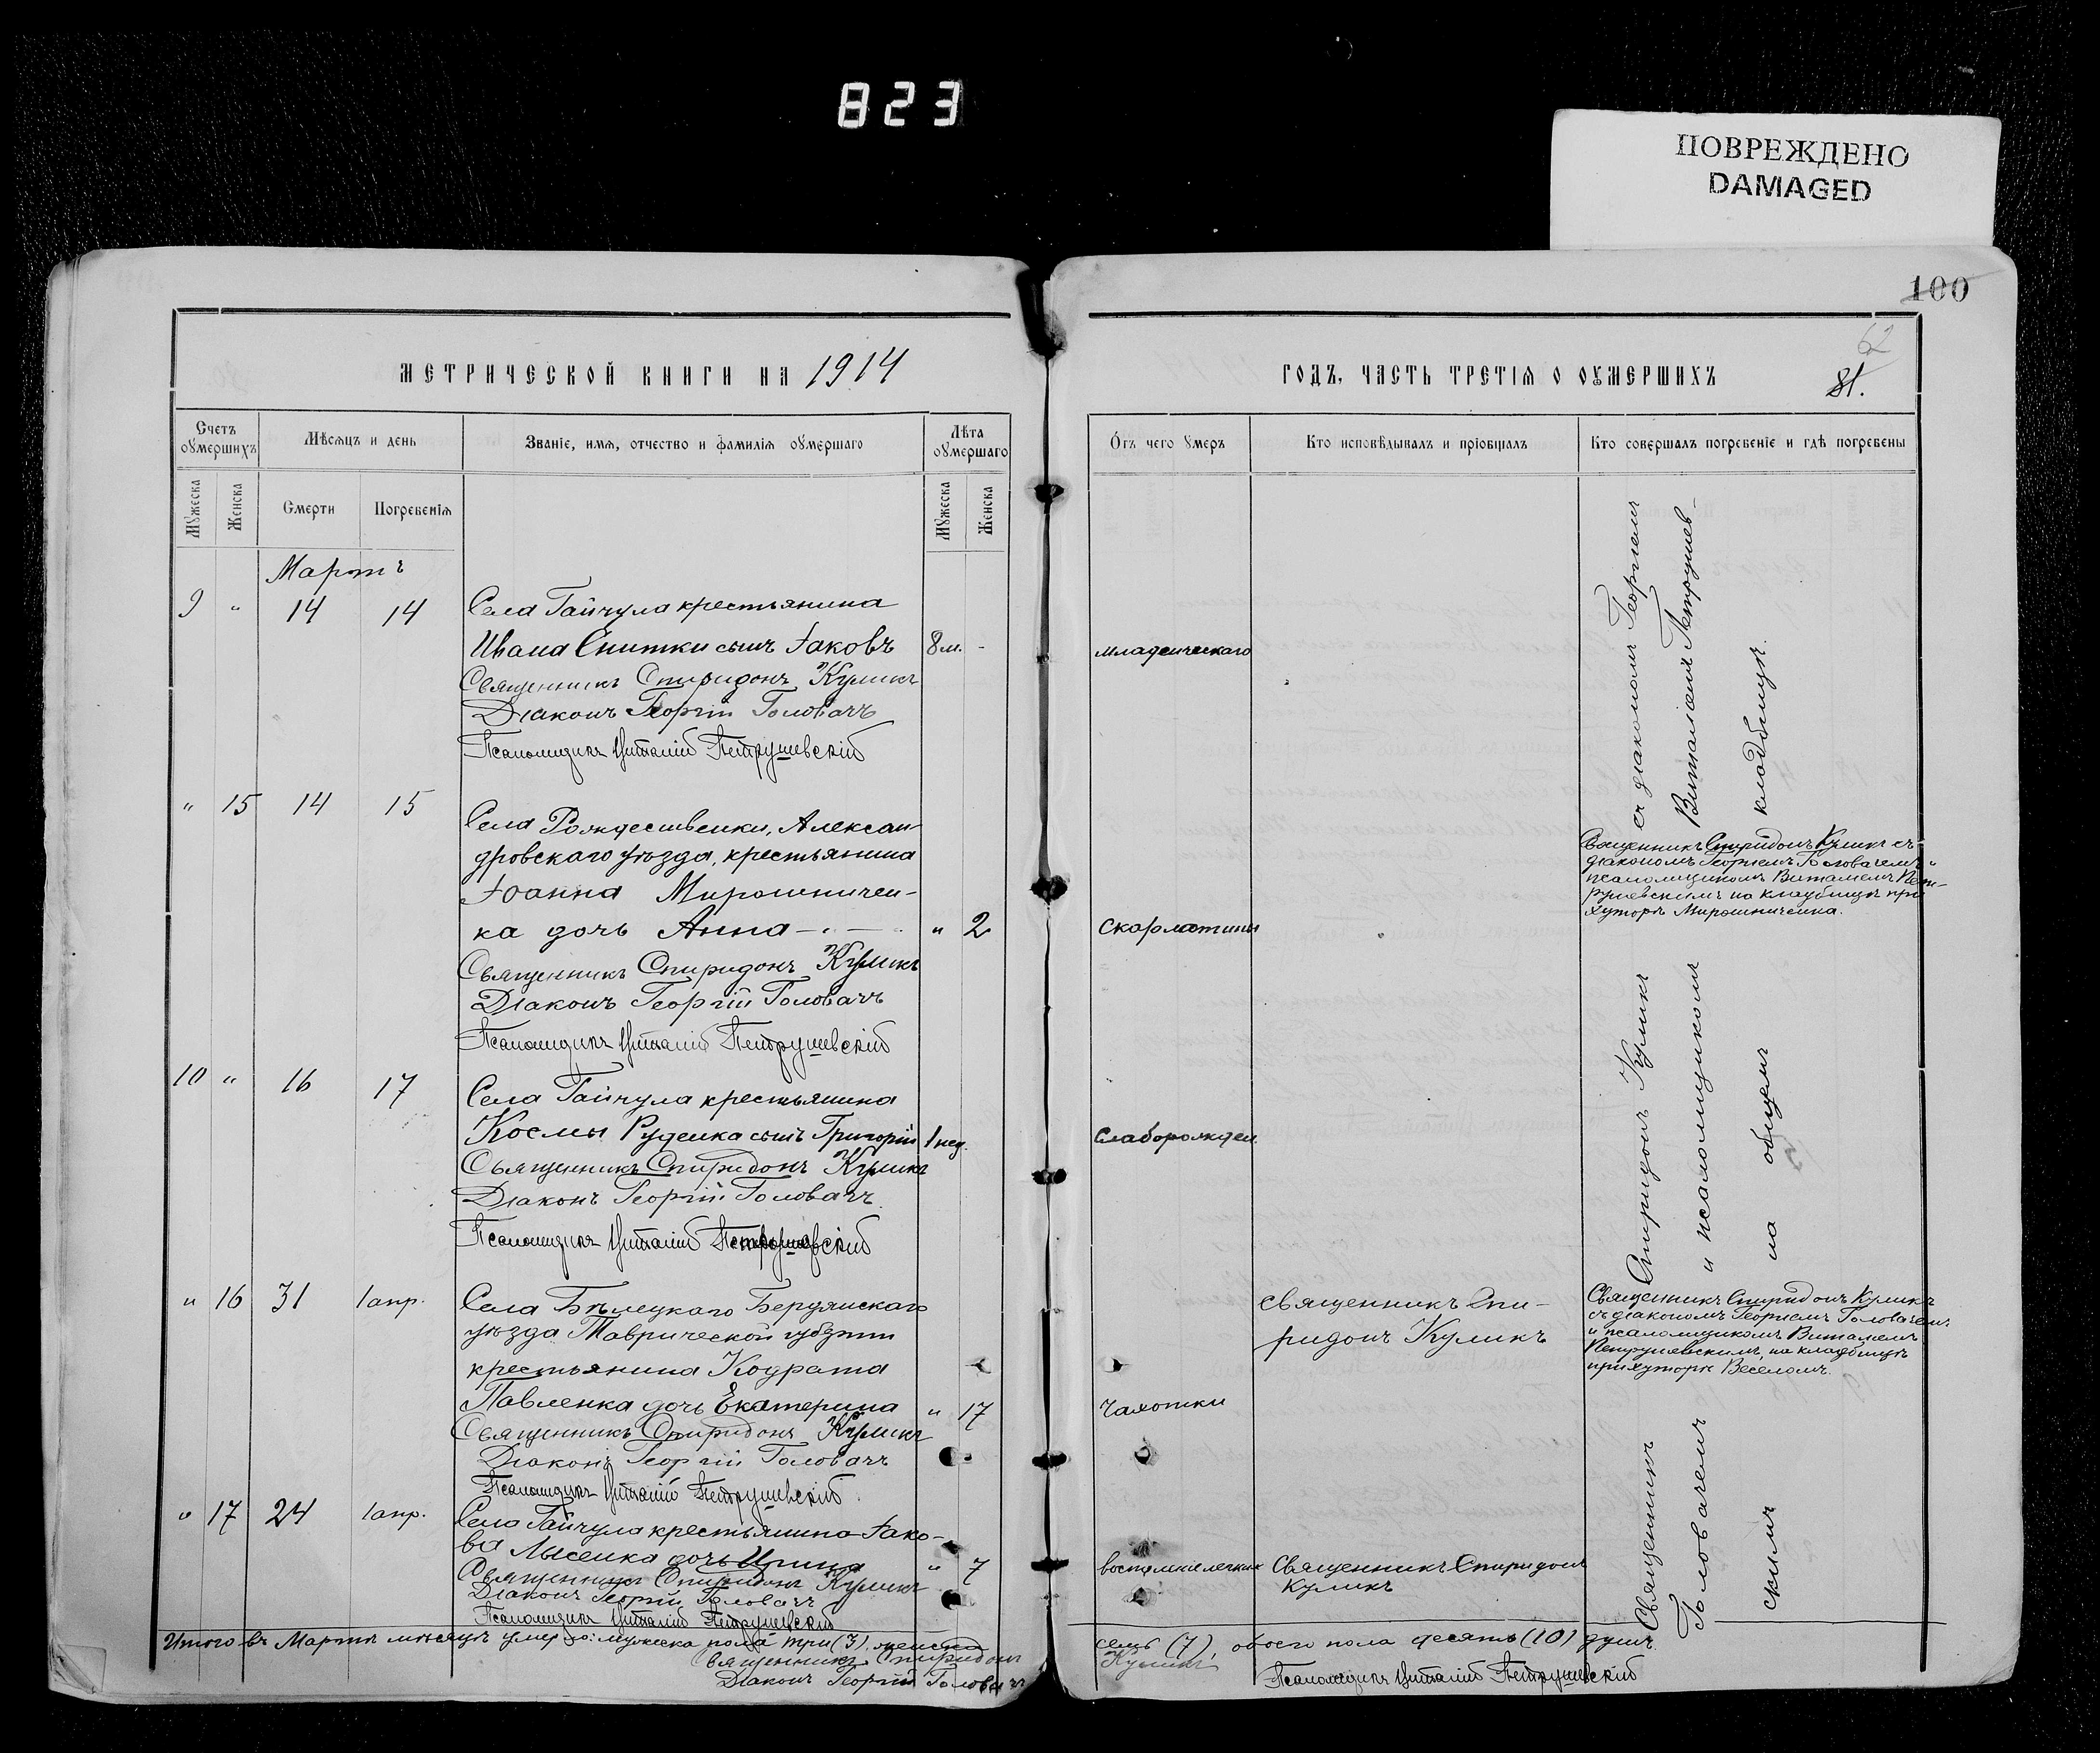 823
ПОВРЕЖДЕНО
DAMAGED
100
62
81.
МЕТРИЧЕСКОЙ КНИГИ НА 1914
ГОДЪ, ЧАСТЬ ТРЕТІЯ О ОУМЕРШИХЪ
Счетъ оумершихъ
Мѣсяцъ и день
Званіе, имя, отчество и фамилія оумершаго
Лѣта оумершаго
Отъ чего умеръ
Кто исповѣдывалъ и пріобщалъ
Кто совершалъ погребеніе и гдѣ погребены
Мужеска
Женска
Смерти
Погребенія
Мужеска
Женска
Мартъ
9 " 14 14 Села Гайчула крестьянина
Ивана Снитки сынъ Іаковъ 8 м. - младенческаго
Священникъ Спиридонъ Куликъ
Діаконъ Георгій Головачъ
Псаломщикъ Виталій Петрушевскій
" 15 14 15
Села Рождественки, Алексан-
дровскаго уѣзда, крестьянина
Іоанна Мирошничен-
ка дочь Анна " 2 Скарлатины
Священникъ Спиридонъ Куликъ
Діаконъ Георгій Головачъ
Псаломщикъ Виталій Петрушевскій
Священникъ Спиридонъ Куликъ съ
діакономъ Георгіемъ Головачемъ и
псаломщикомъ Виталіемъ Пет-
рушевскимъ на кладбищѣ при
хуторѣ Мирошниченка.
10 " 16 17 Села Гайчула крестьянина
Космы Руденка сынъ Григорій 1 нед. Слаборожден.
Священникъ Спиридонъ Куликъ
Діаконъ Георгій Головачъ
Псаломщикъ Виталій Петрушевскій
" 16 31 1 апр. Села Бѣлецкаго Бердянскаго
уѣзда Таврической губерніи
крестьянина Кодрата
Павленка дочь Екатерина " 17 Чахотки
Священникъ Спиридонъ Куликъ
Діаконъ Георгій Головачъ
Псаломщикъ Виталій Петрушевскій
Священникъ Спи-
ридонъ Куликъ
Священникъ Спиридонъ Куликъ
съ діакономъ Георгіемъ Головачемъ
и псаломщикомъ Виталіемъ
Петрушевскимъ на кладбищѣ
при хуторѣ Веселомъ.
" 17 24 1 апр. Села Гайчула крестьянина Іако-
ва Лысенка дочь Ирина " 7 воспаленіе легкихъ Священникъ Спиридонъ
Куликъ
Священникъ Спиридонъ Куликъ
Діаконъ Георгій Головачъ
Псаломщикъ Виталій Петрушевскій
Священникъ Спиридонъ Куликъ съ діакономъ Георгіемъ
Головачемъ и псаломщикомъ Виталіемъ Петрушев-
скимъ на общемъ кладбищѣ.
Итого въ Мартѣ мѣсяцѣ умерло: мужеска пола три (3), женска
семь (7), обоего пола десять (10) душъ.
Священникъ Спиридонъ Куликъ
Діаконъ Георгій Головачъ
Псаломщикъ Виталій Петрушевскій